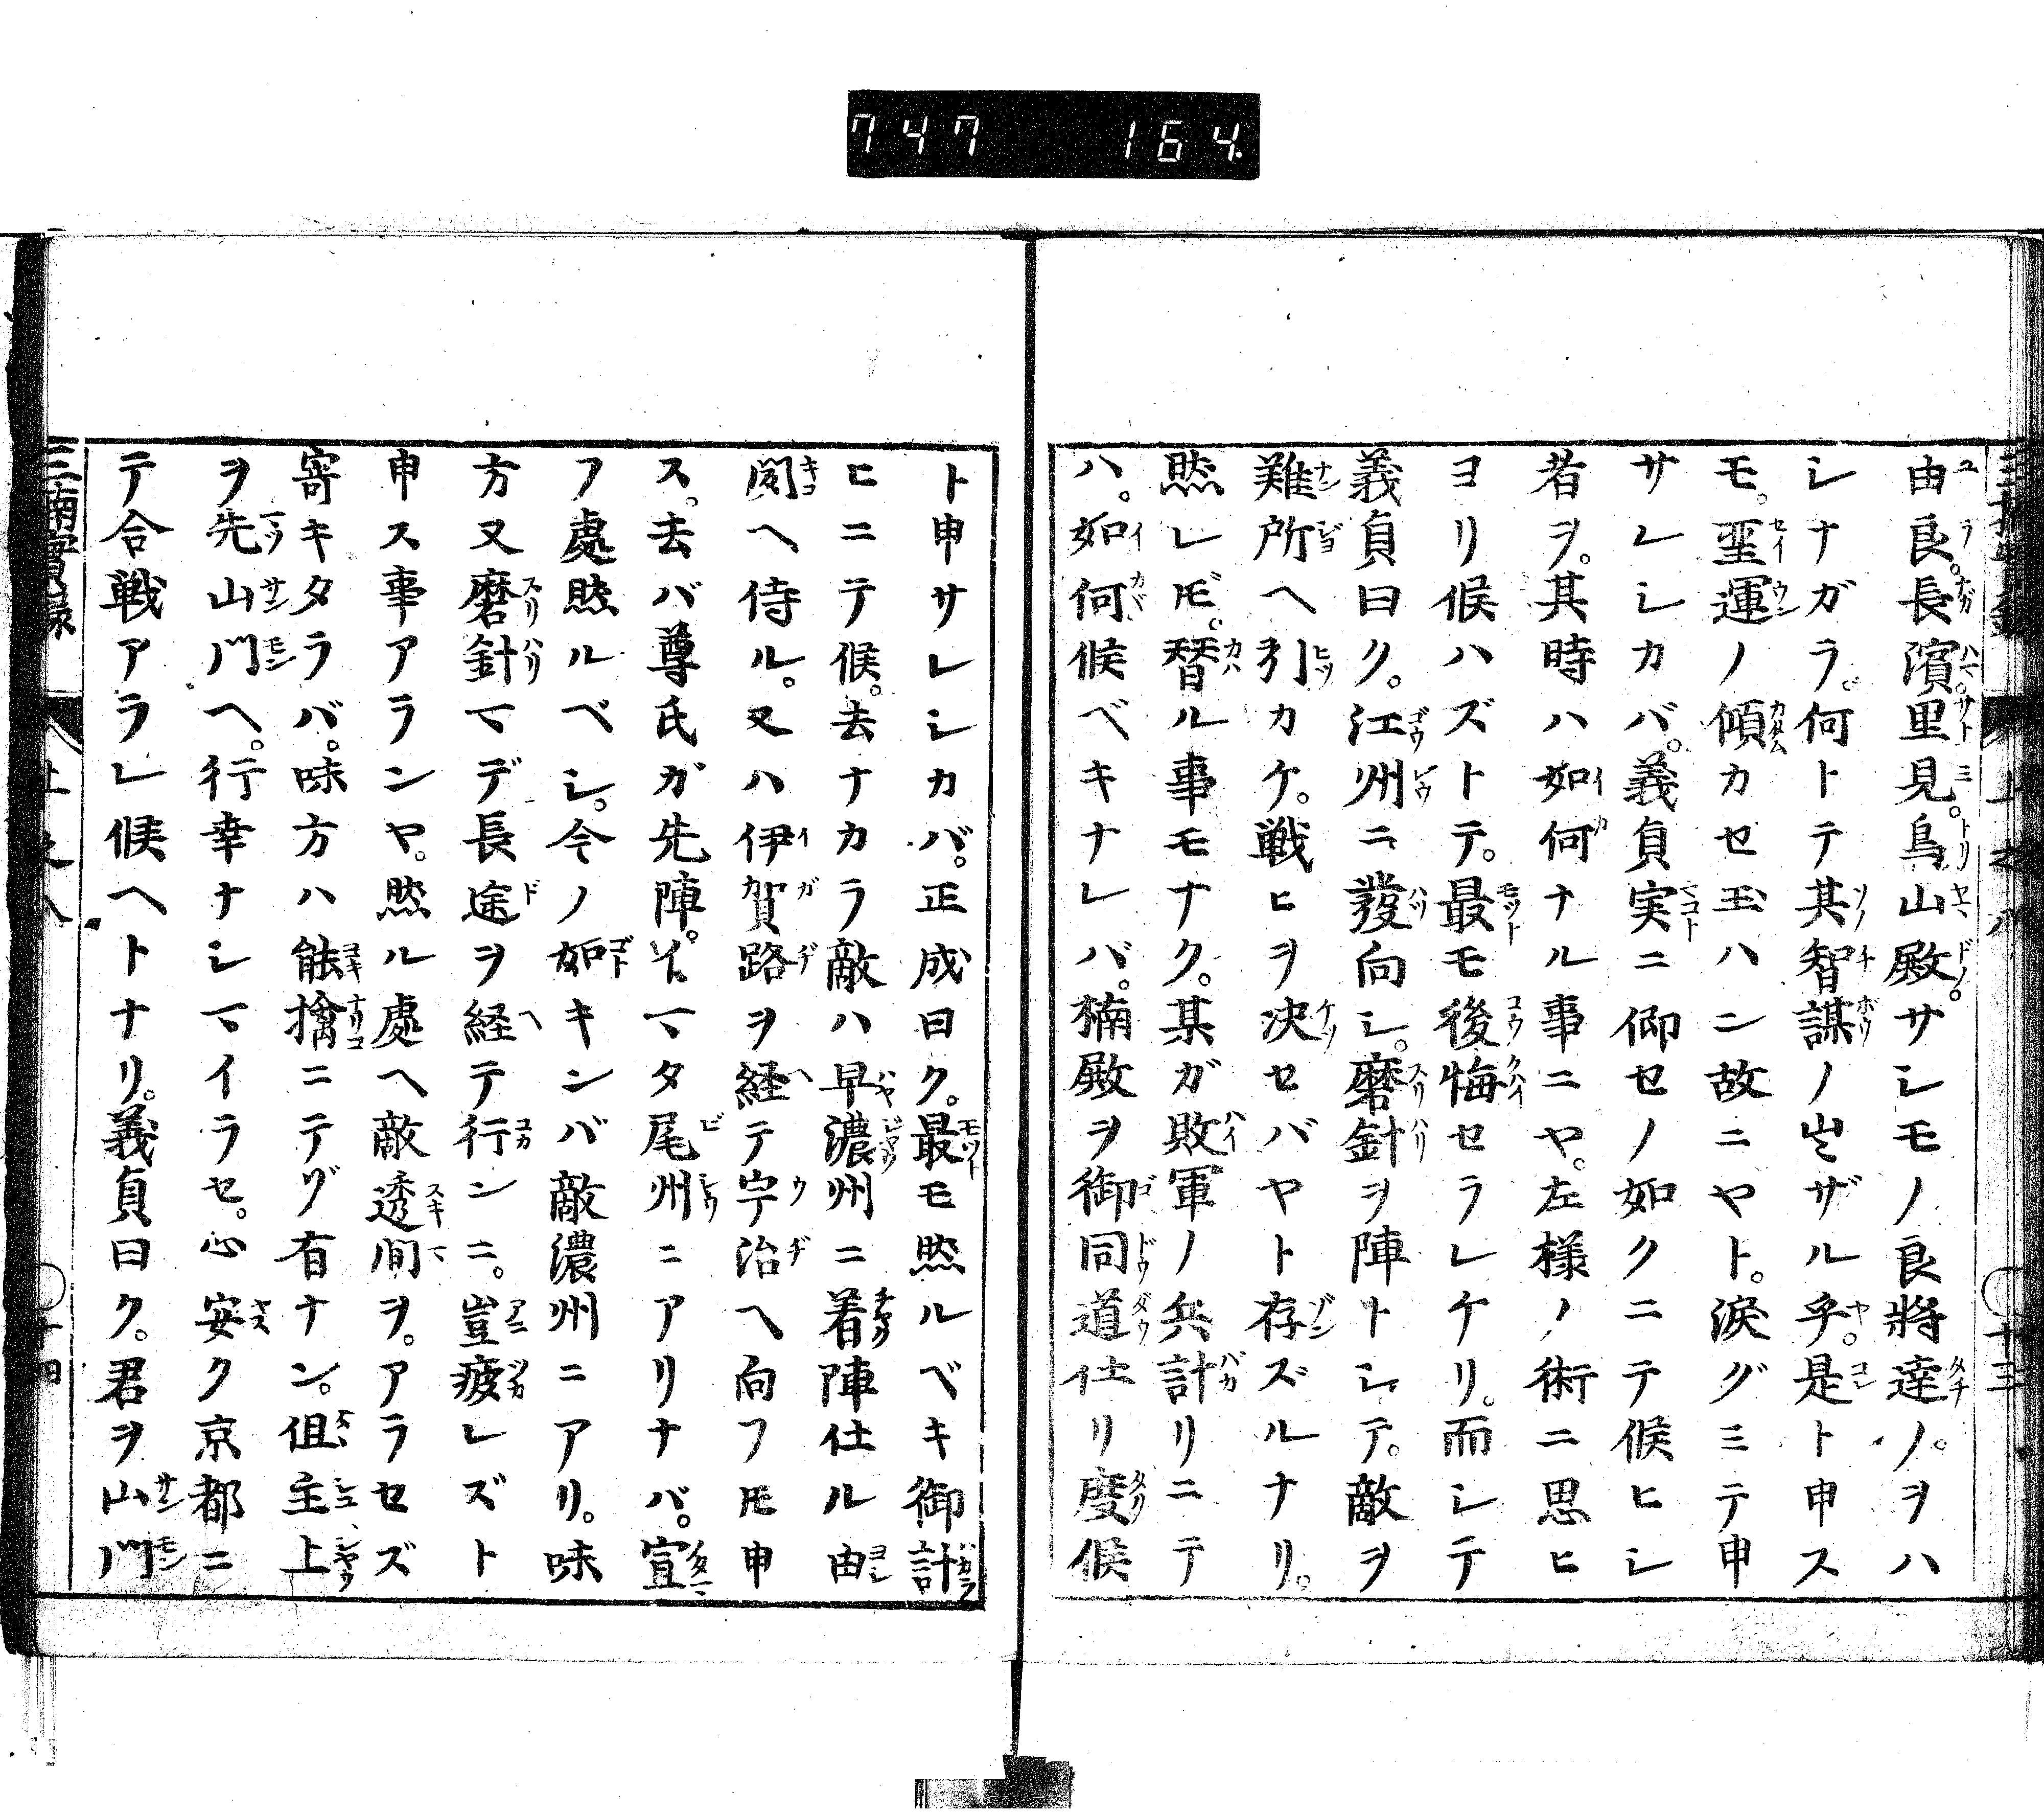 747 164
由良。長濱。里見。鳥山殿。サシモノ良將達ノ。ヲハ
シナガラ。何トテ其智謀ノ出ザル乎。是ト申ス
モ。聖運ノ傾カセ玉ハン故ニヤト。涙グミテ申
サレシカバ。義貞実ニ仰セノ如クニテ候ヒシ
若ヲ。其時ハ如何ナル事ニヤ。左様ノ術ニ思ヒ
ヨリ候ハズトテ。最モ後悔セラレケリ。而シテ
義貞曰ク。江州ニ發向シ。磨針ヲ陣トシテ。敵ヲ
難所ヘ引カケ。戦ヒヲ决セバヤト存ズルナリ。
然レ𪜈。替ル事モナク。某ガ敗軍ノ兵計リニテ
ハ。如何候ベキナレバ。楠殿ヲ御同道仕リ度候
ト申サレシカバ。正成曰ク。最モ然ルベキ御計
ヒニテ候。去ナカラ敵ハ早濃州ニ着陣仕ル由
聞ヘ侍ル。又ハ伊賀路ヲ経テ宇治ヘ向フ𪜈申
ス。去バ尊氏ガ先陣。イマタ尾州ニアリナバ。宜
フ處然ルベシ。今ノ如キンバ敵濃州ニアリ。味
方又磨針マデ長途ヲ経テ行ンニ。豈疲レズト
申ス事アランヤ。然ル處ヘ敵透間ヲ。アラセズ
寄キタラバ。味方ハ能擒ニテゾ有ナン。但主上
ヲ先山門ヘ。行幸ナシマイラセ。心安ク京都ニ
テ合戦アラレ候ヘトナリ。義貞曰ク。君ヲ山門